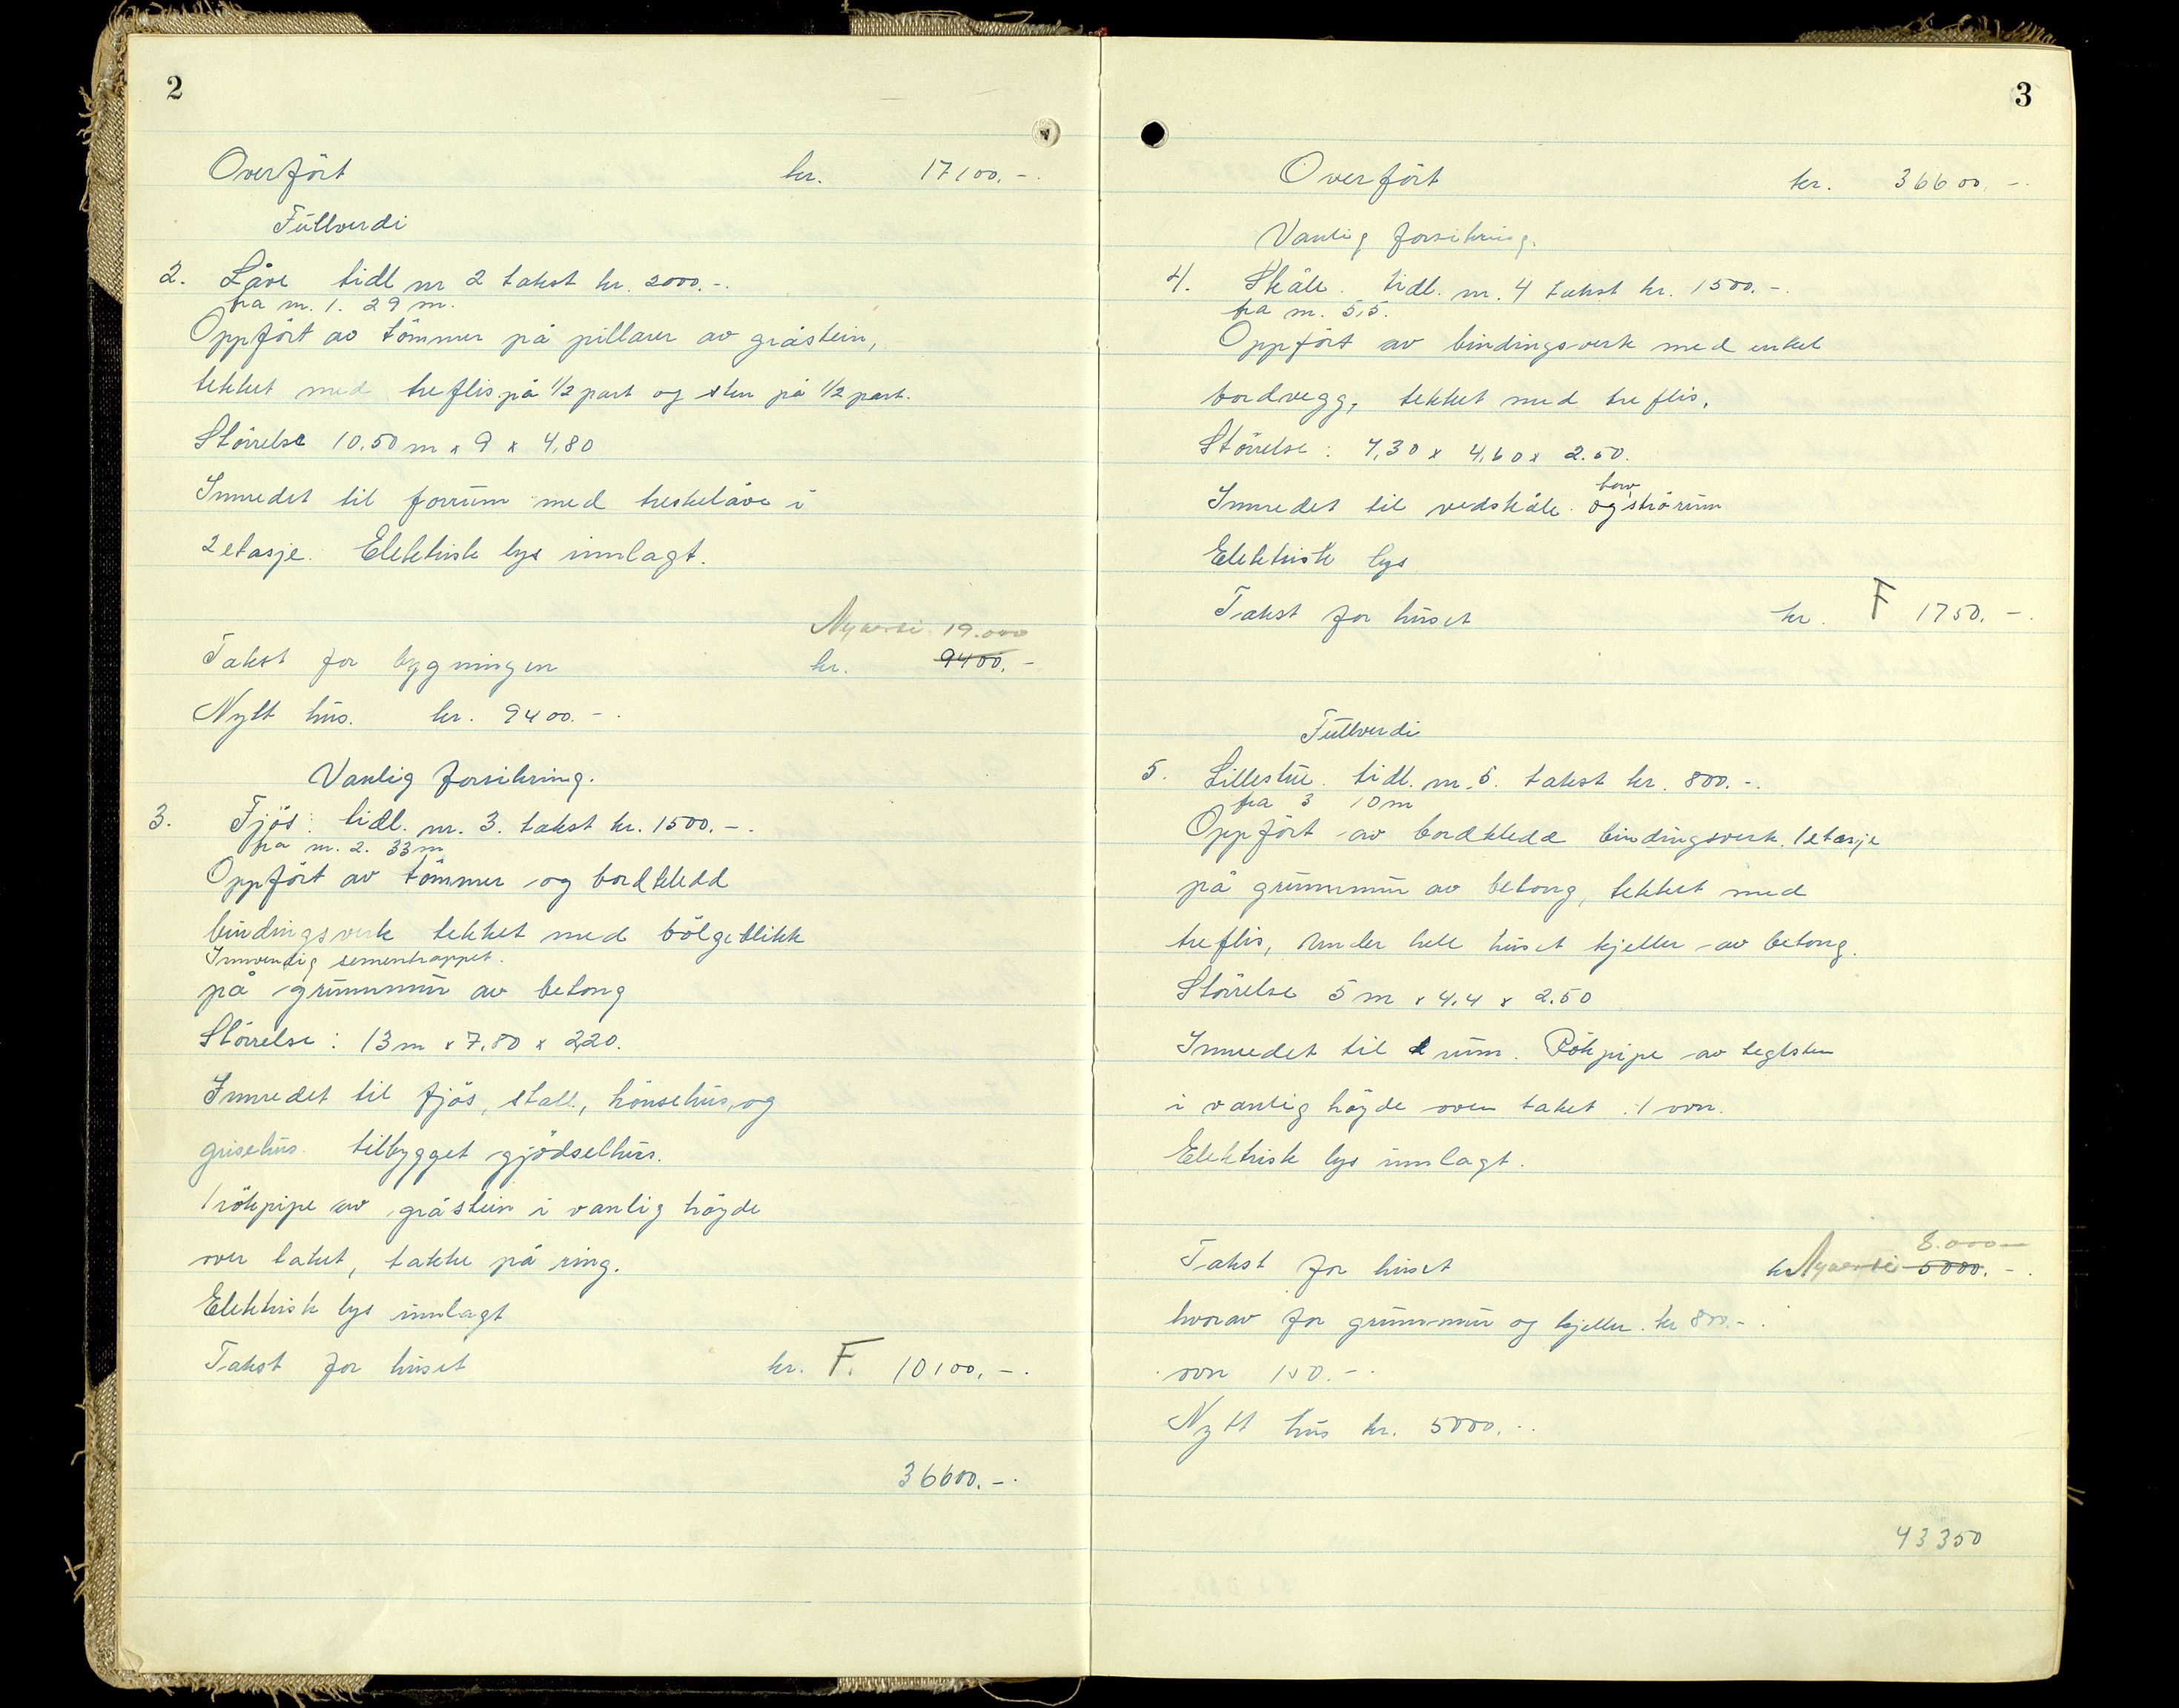 2
Overført kr. 17100.-
Fullverdi
2. Låve tidl nr 2 takst kr. 2000.-.
fra nr. 1. 29 m.
Oppført av tømmer på pillarer av gråstein,
tekket med treflis på 1/2 part og sten på 1/2 part.
Størrelse 10.50 m x 9 x 4,80
Innredet til forrum med treskelåve i
2 etasje. Elektrisk lys innlagt.
Nyverdi 19.000
Takst for bygningen kr. 9400.-
Nytt hus. kr. 9400.-.
Vanlig forsikring.
3. Fjøs: tidl. nr. 3. takst kr. 1500.-.
fra nr. 2. 33 m
Oppført av tømmer og bordkledd
bindingsverk tekket med bølgeblikk
Innvendig sementrappet.
på grunnmur av betong
Størrelse: 13 m x 7,80 x 2,20.
Innredet til fjøs, stall, hønsehus, og
grisehus. tilbygget gjødselhus.
1 rökpipe av gråstein i vanlig høyde
over taket, takke på ring.
Elektrisk lys innlagt
Takst for huset kr. F. 10100.-.
36600.-.
3
Overført kr. 36600.-.
Vanlig forsikring.
4. Skåle. tidl. nr. 4 takst kr. 1500.-.
fra nr. 5,5.
Oppført av bindingsverk med enkel
bordvegg, tekket med treflis,
Størrelse: 7,30 x 4,60 x 2.50.
Innredet til vedskåle. og strörum
Elektrisk lys
Takst for huset kr. F 1750.-.
Fullverdi
5. Lillestue. tidl. nr. 5. takst kr. 800.-.
fra 3 10 m
Oppført av bordkledd bindingsverk. 1 etasje
på grunnmur av betong, tekket med
treflis, under hele huset kjeller av betong.
Størrelse 5 m x 4,4 x 2.50
Innredet til rum. Rökpipe av teglsten
i vanlig høyde over taket. 1 ovn.
Elektrisk lys innlagt.
8.000-
Takst for huset kr Nyverdi 5000.-.
hvorav for grunnmur og kjeller. kr 800.-.
ovn 150.-.
Nytt hus kr. 5000.-.
43350